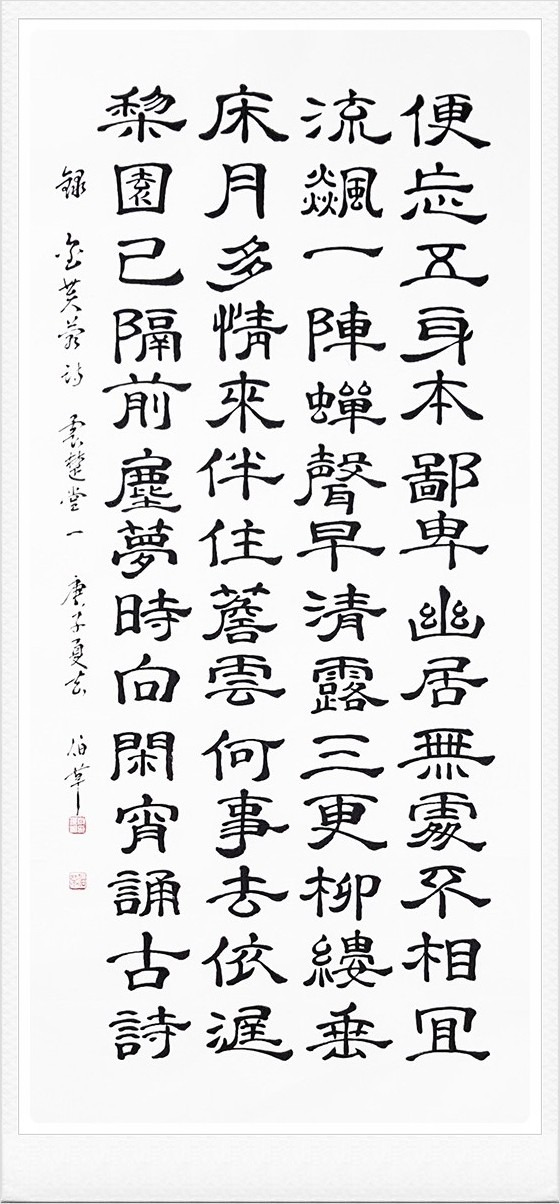 便忘五身本鄙卑幽居無處不相宜
流飆一陣蟬聲早清露三更柳縷垂
床月多情來伴住簷雲何事去依遲
棃園已隔前塵夢時向閑宵誦古詩
録 金芙蓉詩 雲楚堂一 庚子夏至 伯華